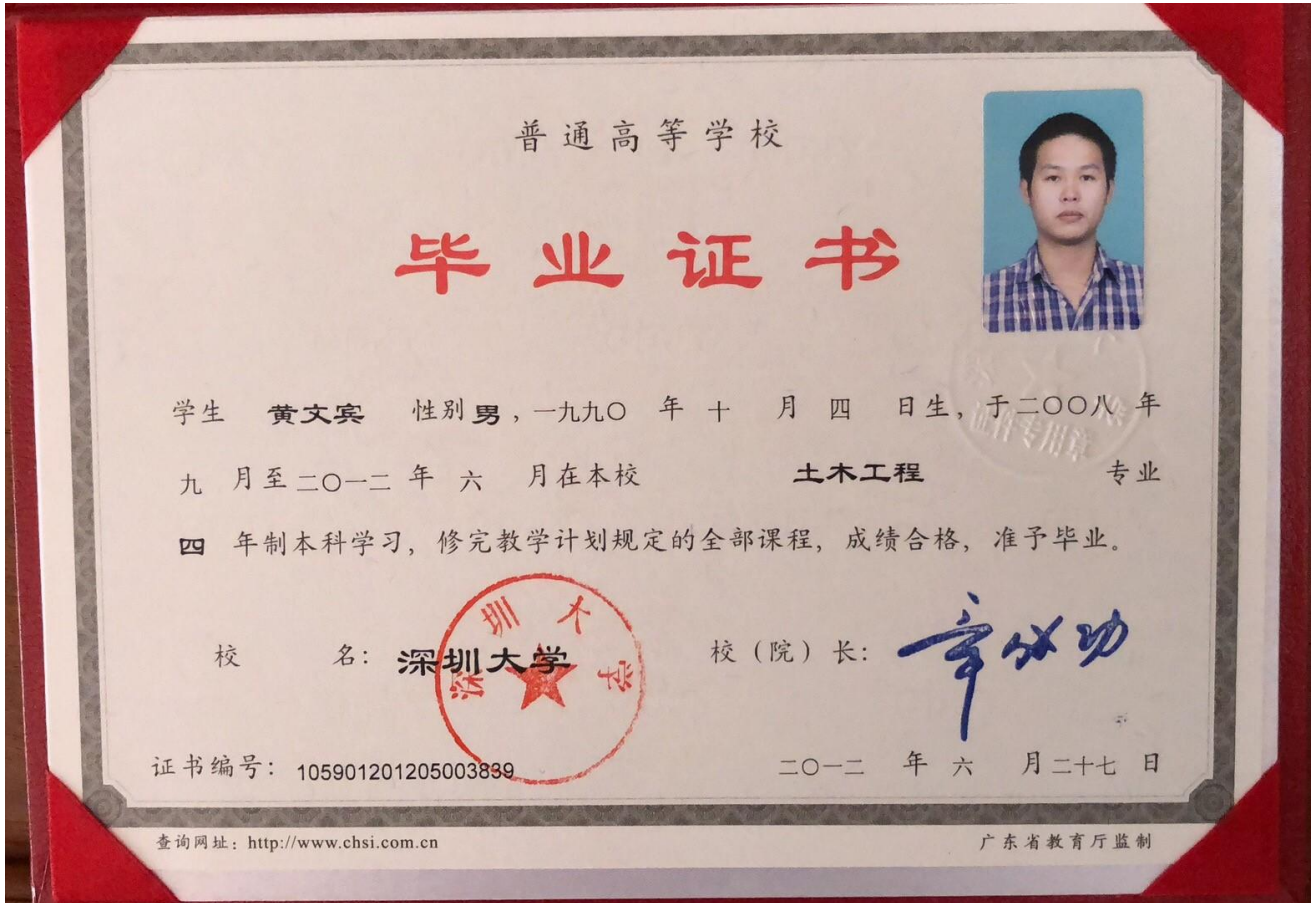 普通高等学校
毕业证书
学生 黄文宾 性别 男，一九九〇 年 十 月 四 日生，于二〇〇八 年
九 月至 二〇一二 年 六 月在本校 土木工程 专业
四 年制本科学习，修完教学计划规定的全部课程，成绩合格，准予毕业。
校 名：深圳大学 校（院）长：章必功
深圳大学
证书编号：105901201205003839 二〇一二 年 六 月 二十七 日
查询网址：http://www.chsi.com.cn 广东省教育厅监制
证件专用章